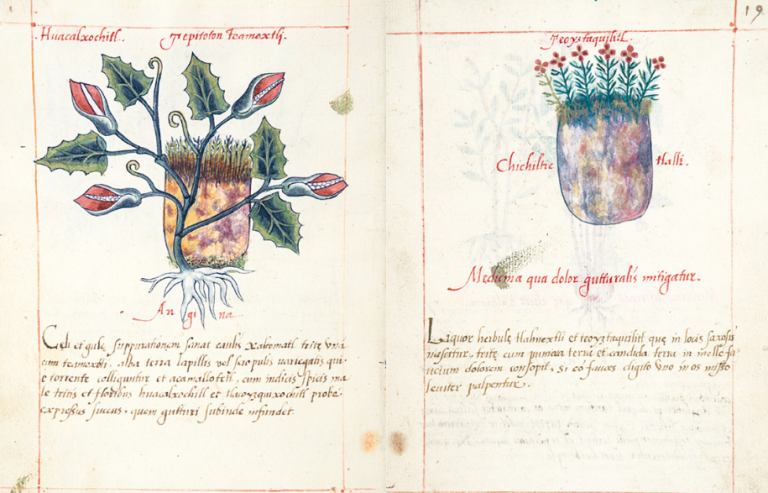 Huacalxochitl. Tepitoton Teamoxtli.
An gi na.
Colli et gulę suppurationem sanat caulis xaltomatl trite vna
cum teamoxtli, alba terra lapillis vel scrupulis variegatis qui
e torrente colliguntur et acamallotetl, cum indicis spicis ma
le tritis et floribus huacalxochitl et tlacoyzquixochitl probe
expressus succus, quem gutturi subinde infundet.
19
Teoyztaquilitl.
Chichiltic tlalli.
Medicina qua dolor gutturalis mitigatur.
Liquor herbulę tlalmextli et teoyztaquilitl que in locis saxosis
nascitur, tritę cum punicea terra et candida terra in melle fa
ucium dolorem consopit, si eo fauces digito vno in os misso
leniter palpentur.